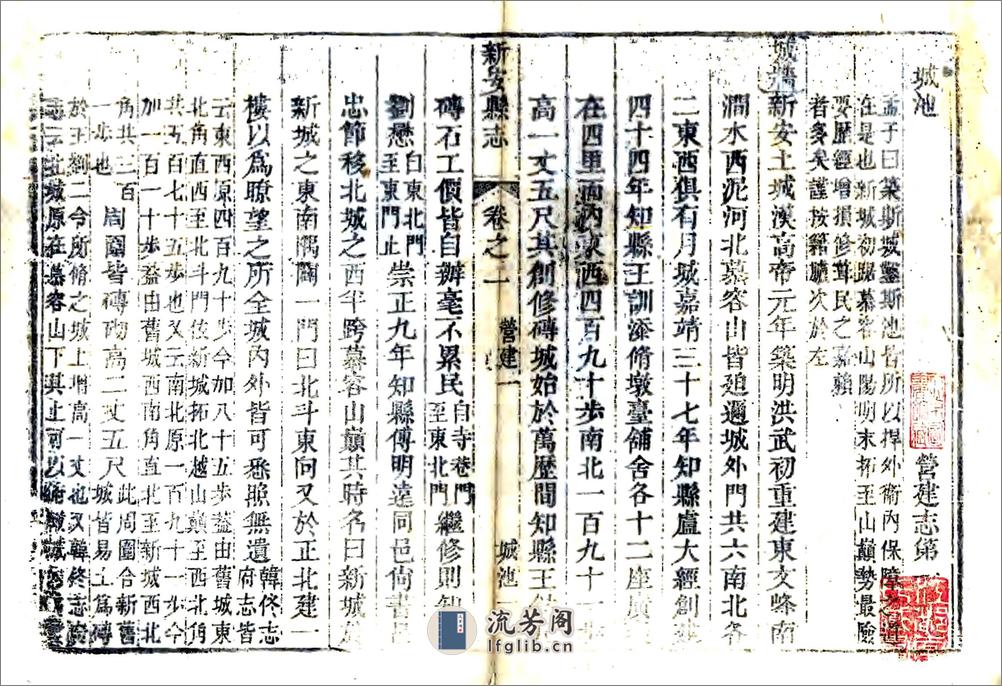 城池
營建志第
孟子曰築斯城鑿斯池皆所以捍外衛內保障之道
在是也新城初踞慕容山陽明末拓至山巔勢最險
要歷經增損修葺民之嘉賴
者多矣謹按籍臚次於左
城牆
新安土城漢高帝元年築明洪武初重建東文峰南
澗水西泥河北慕容山皆廹邇城外門共六南北各
二東西俱有月城嘉靖三十七年知縣盧大經創
四十四年知縣王訓添脩墩臺舖舍各十二座廣
在四里面內東西四百九十步南北一百九十一
高一丈五尺其創修磚城始於萬歷間知縣王
磚石工價皆自辦毫不累民自寺巷門至東北門繼修則知
新安縣志
卷之二
營建一
城池
劉懋自東北門至東門止崇正九年知縣傅明遠同邑尚書呂
忠節移北城之西半跨慕容山巔其時名曰新城
新城之東南隅闢一門曰北斗東向又於正北建一
樓以為瞭望之所全城內外皆可悉照無遺韓佟志府志皆
云東西原四百九十步今加八十五步葢由舊城東
北角直西至北斗門依新城拓北越山巔至西北角
共五百七十五步也又云南北原一百九十一步今
加一百一十步葢由舊城西南角直北至新城西北
角共三百一步也周圍皆磚砌高二丈五尺此周圍合新舊城皆易土為磚
於王劉二令所脩之城上增高一丈也又韓佟志
志云土城原在慕容山下其止可以
流芳阁
lfglib.cn